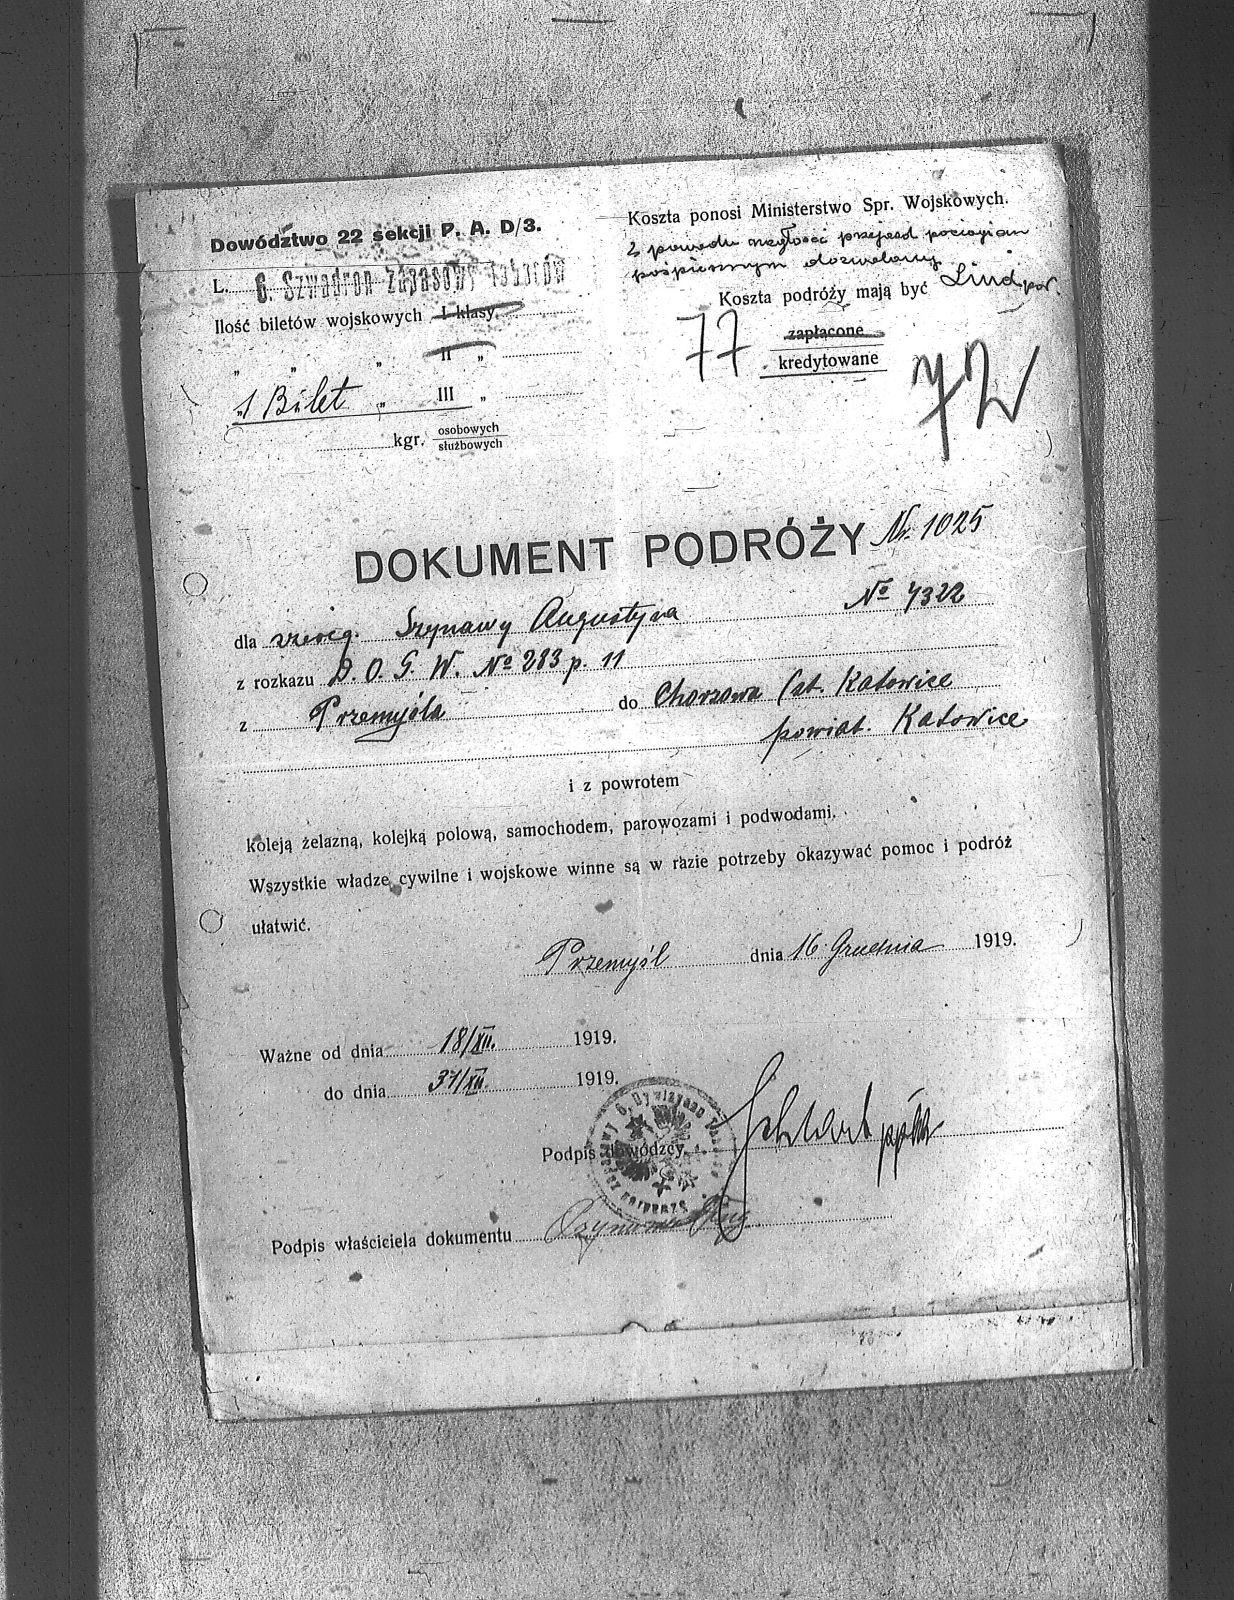 Dowództwo 22 sekcji P. A. D/3.
L. 6. Szwadron Zapasowy Taborów
Ilość biletów wojskowych I klasy
" " " II "
"1 Bilet " III "
kgr. osobowych
służbowych
Koszta ponosi Ministerstwo Spr. Wojskowych.
z powodu nagłości przejazd pociągiem
pośpiesznym dozwolony
Lind por.
Koszta podróży mają być
zapłacone
kredytowane
77
72
DOKUMENT PODRÓŻY Nr. 1025
dla Szynawy Augustyna No 4322
z rozkazu D. O. G. W. No 283 p. 11
z Przemyśla do Chorzowa (st. Katowice
powiat. Katowice
i z powrotem
koleją żelazną, kolejką polową, samochodem, parowozami i podwodami.
Wszystkie władze cywilne i wojskowe winne są w razie potrzeby okazywać pomoc i podróż
ułatwić.
Przemyśl dnia 16 Grudnia 1919.
Ważne od dnia 18/XII. 1919.
do dnia 31/XII 1919.
Podpis dowódzcy ppłk
Podpis właściciela dokumentu